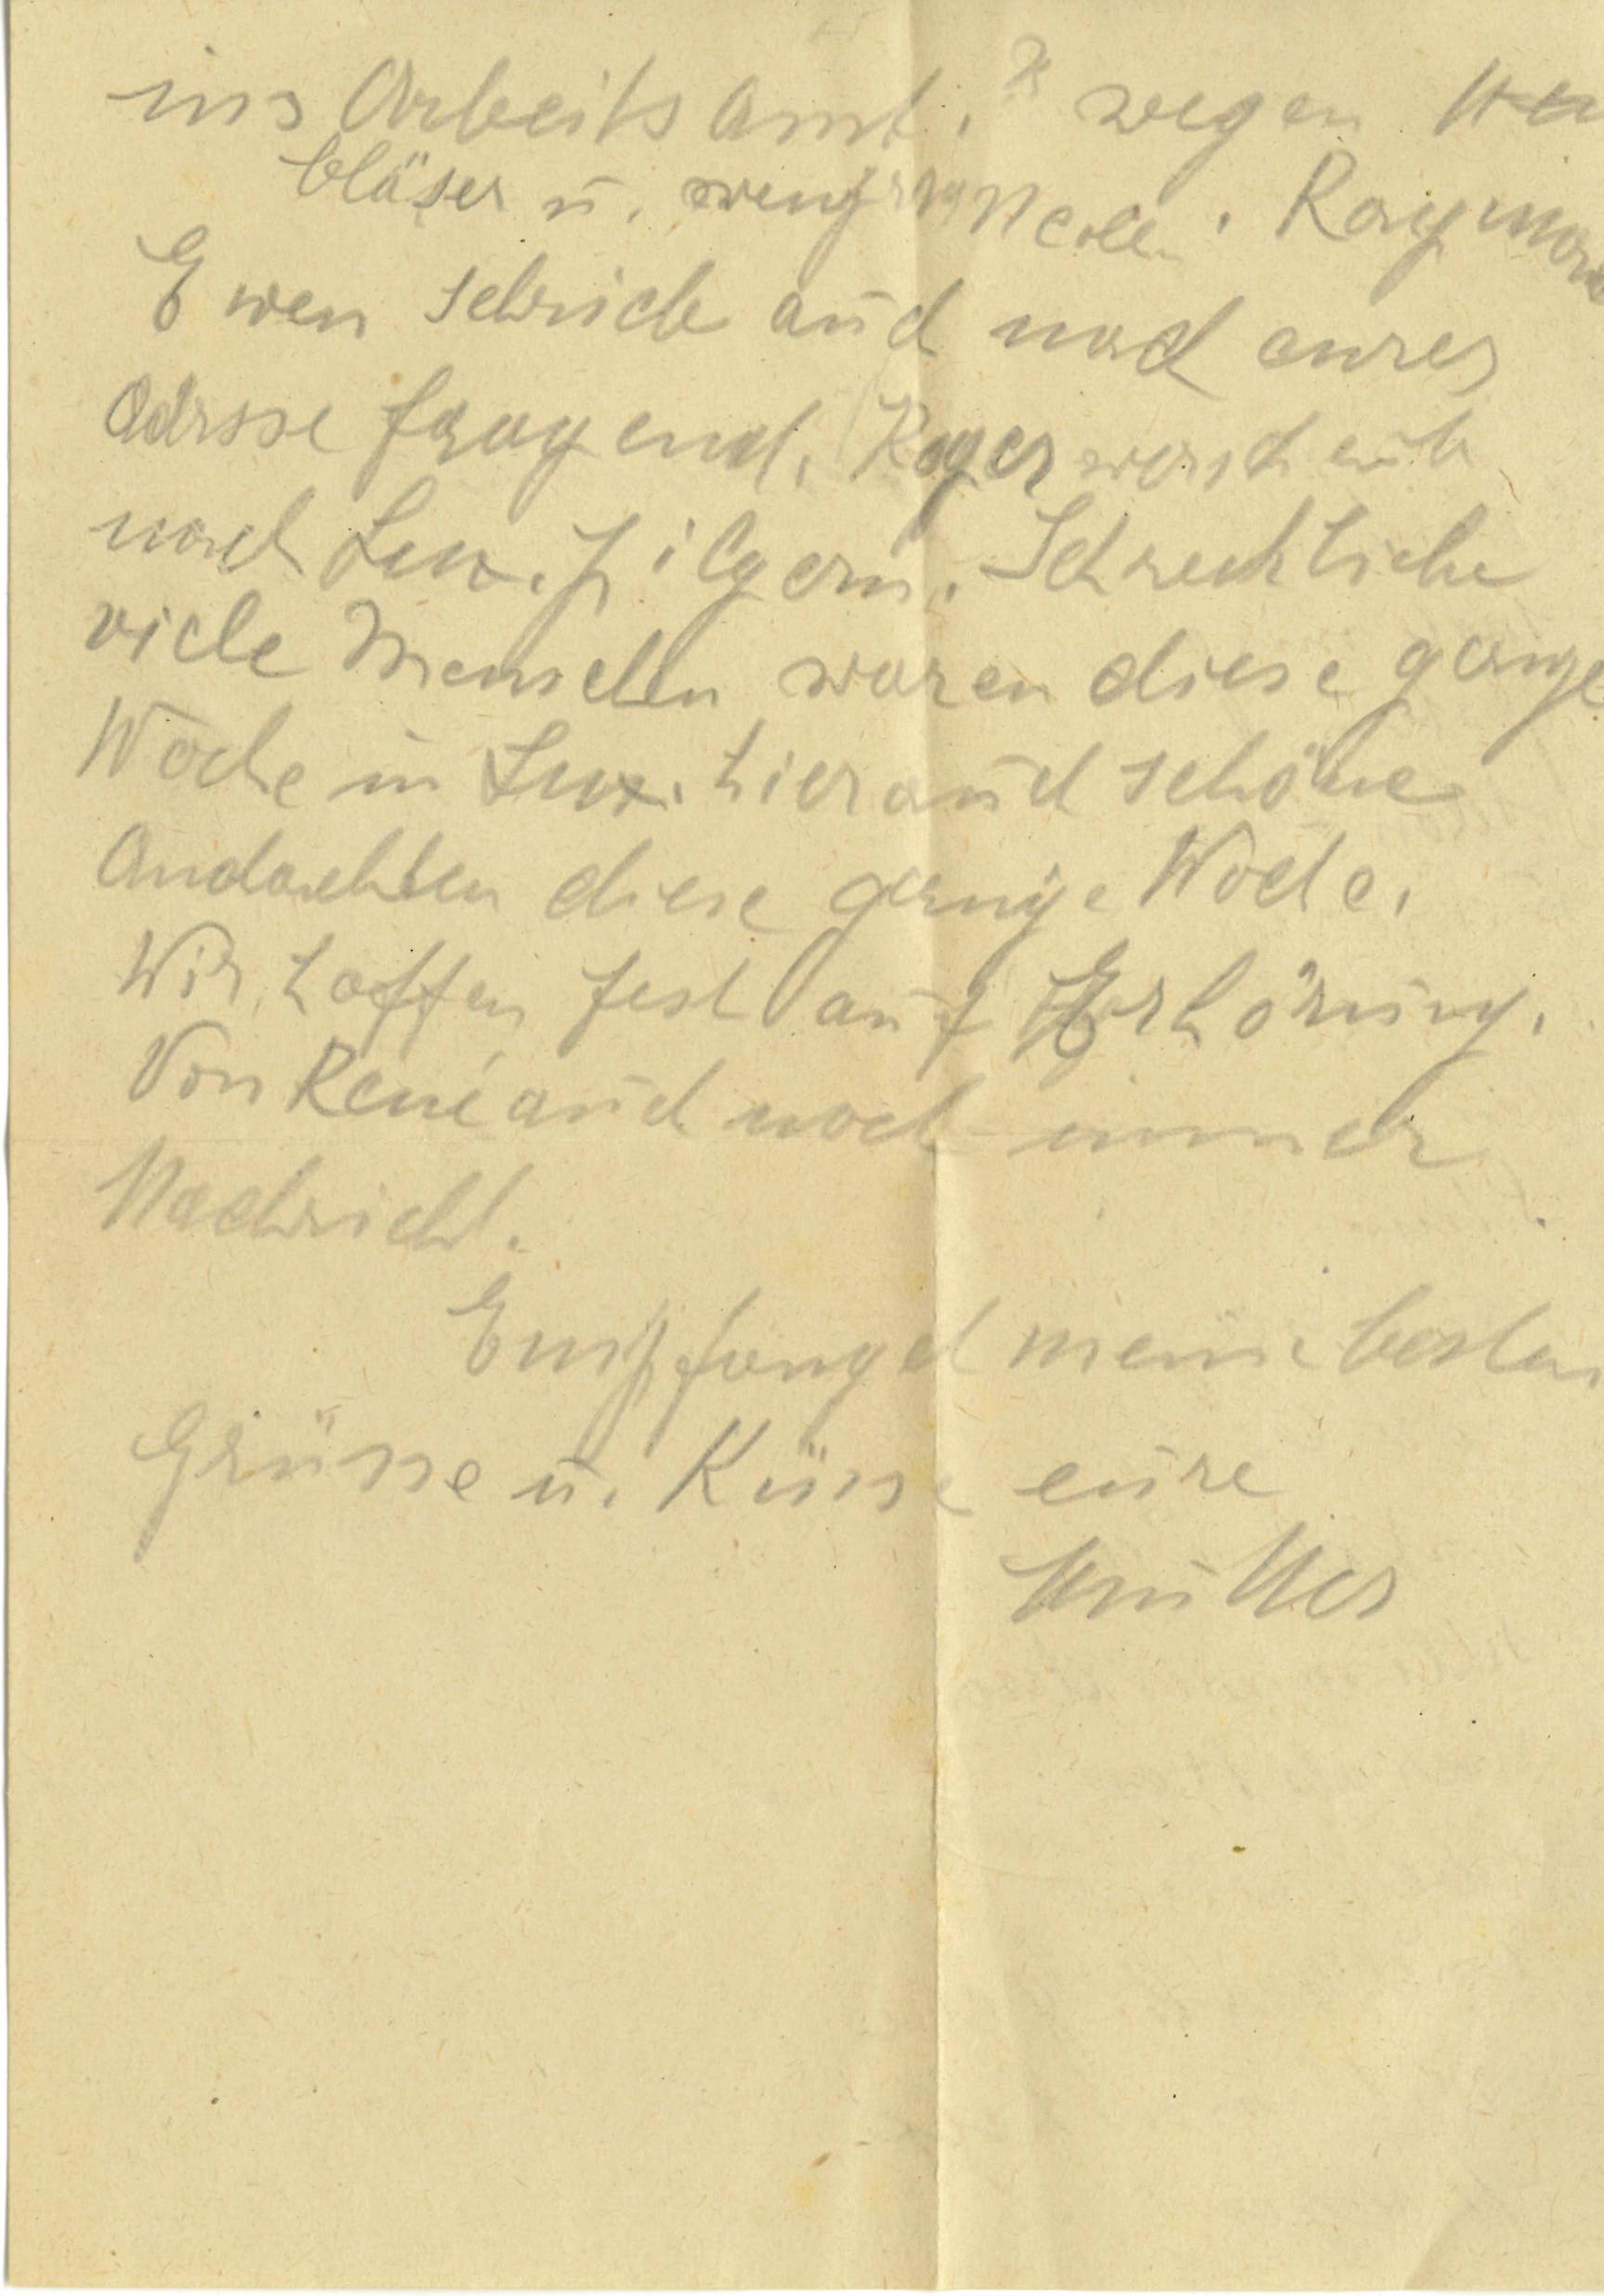 ins Arbeitsamt. wegen
bläser u. Raymon
Ewen schrieb auch nach eurer
Adrsse fragend. Roger war heute
nach Lux. pilgern. Schreckliche
viele Menschen waren diese ganze
Woche in Lux. hier auch schöne
Andachten diese ganze Woche.
Wir hoffen fest auf Erhörung.
Von René auch noch immer
Nachricht.
Empfanget meine besten
Grüsse u. Küsse eure
Mutter